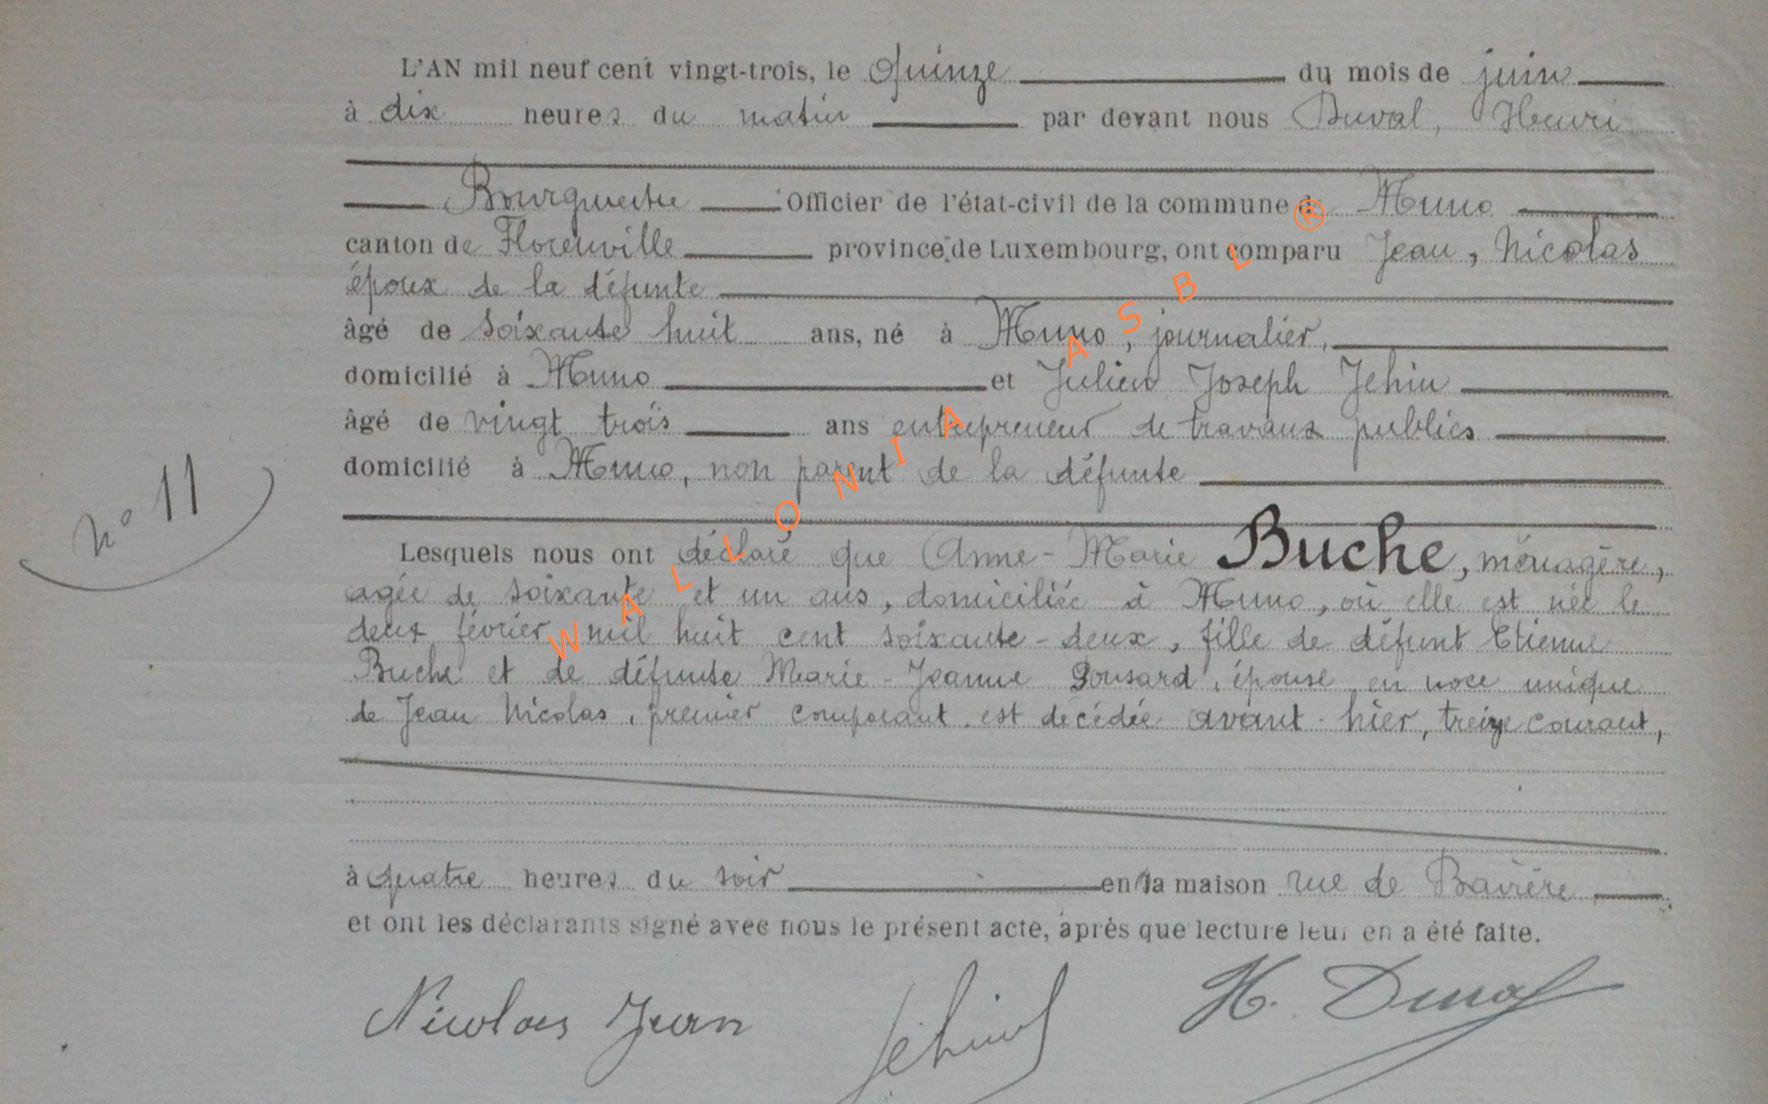 L'AN mil neuf cent vingt-trois, le quinze du mois de juin
à dix heures du matin par devant nous Duval, Henri
Bourgmestre Officier de l'état-civil de la commune de Muno
canton de Florenville province de Luxembourg, ont comparu Jean, Nicolas
époux de la défunte
âgé de soixante huit ans, né à Muno, journalier,
domicilié à Muno et Julien Joseph Jehin
âgé de vingt trois ans entrepreneur de travaux publics
domicilié à Muno, non parent de la défunte
n° 11
Lesquels nous ont déclaré que Anne-Marie Buche, ménagère,
agée de soixante et un ans, domiciliée à Muno, où elle est née le
deux février mil huit cent soixante-deux, fille de défunt Etienne
Buche et de défunte Marie-Jeanne Gousard, épouse en noce unique
de Jean Nicolas, premier comparant, est décédée avant-hier, treize courant,
à quatre heures du soir en sa maison rue de Bavière,
et ont les déclarants signé avec nous le présent acte, après que lecture leur en a été faite.
Nicolas Jean Jehin H. Duval
WALLONIA ASBL ®